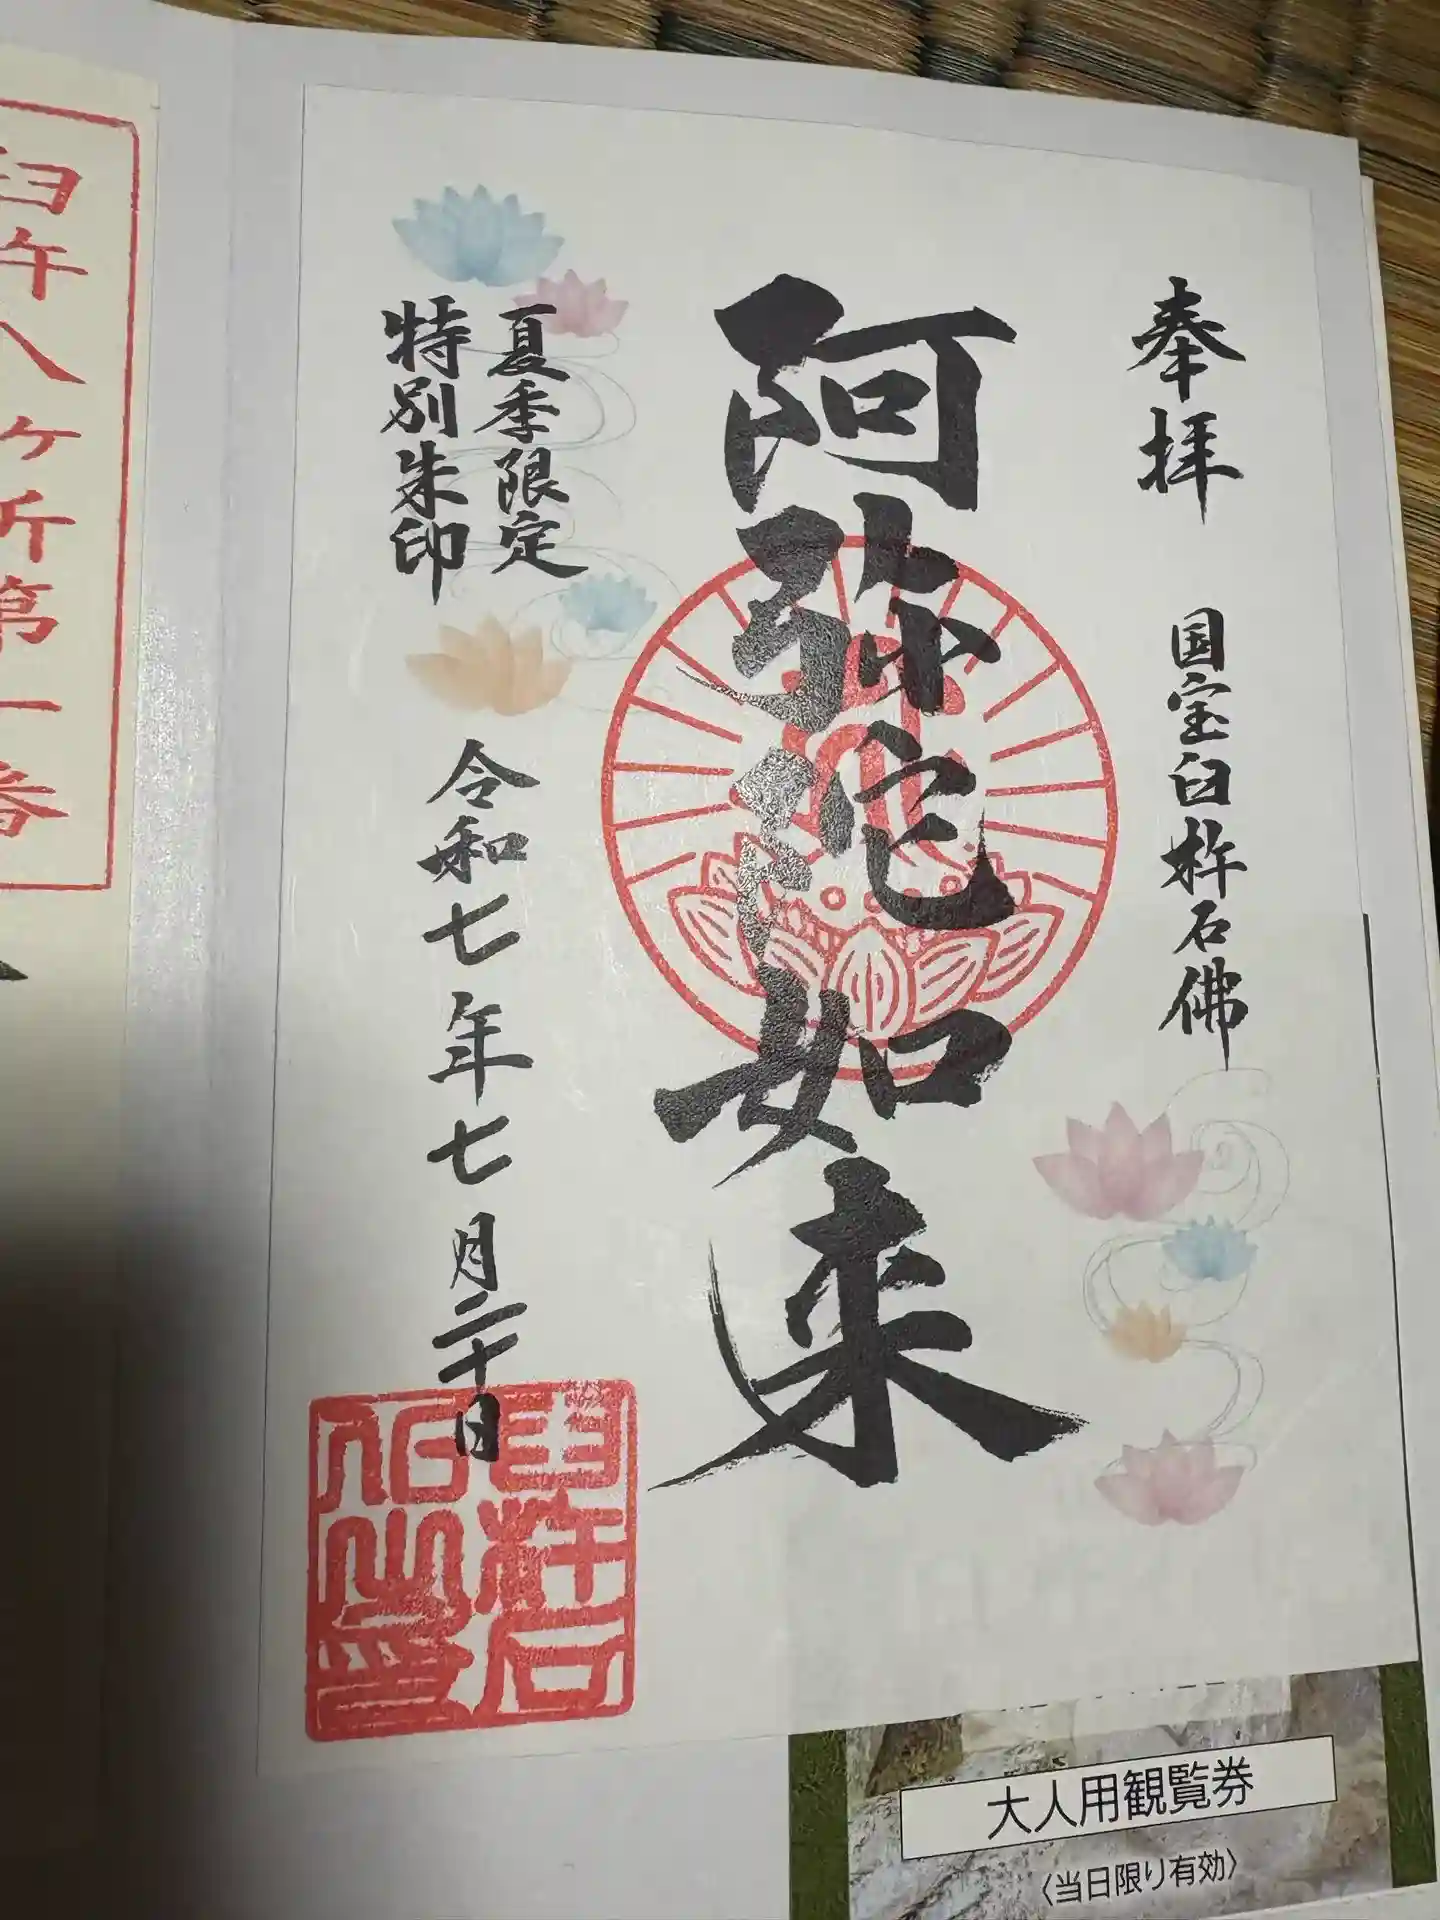 奉拝 国宝臼杵石佛
阿弥陀如来
夏季限定
特別朱印
令和七年七月二十日
臼杵石
仏之印
臼杵八ヶ所第一番
大人用観覧券
〈当日限り有効〉